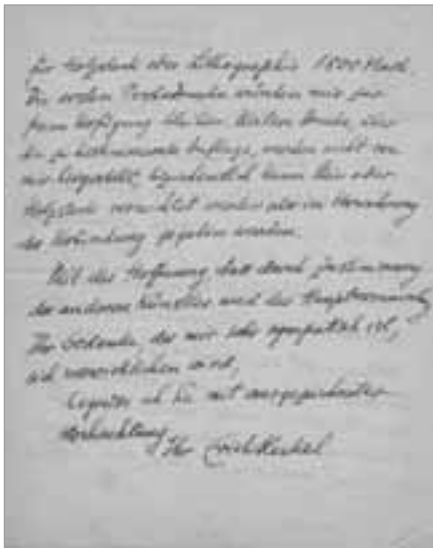 für Holzstock oder Lithographie 1800 Mark.
Die ersten Probedrucke würden mir zur
freien Verfügung bleiben. Weitere Drucke, über
die zu bestimmende Auflage, werden nicht von
mir hergestellt, eigentlich kann Stein oder
Holzstock vernichtet werden oder in Verwahrung
der Verbindung gegeben werden.
Mit der Hoffnung, dass durch Zustimmung
der anderen Künstler und der
Ihr Gedanke, der mir sehr sympathisch ist,
sich verwirklichen wird,
begrüsse ich Sie mit ausgezeichneter
Hochachtung
Ihr Erich Heckel